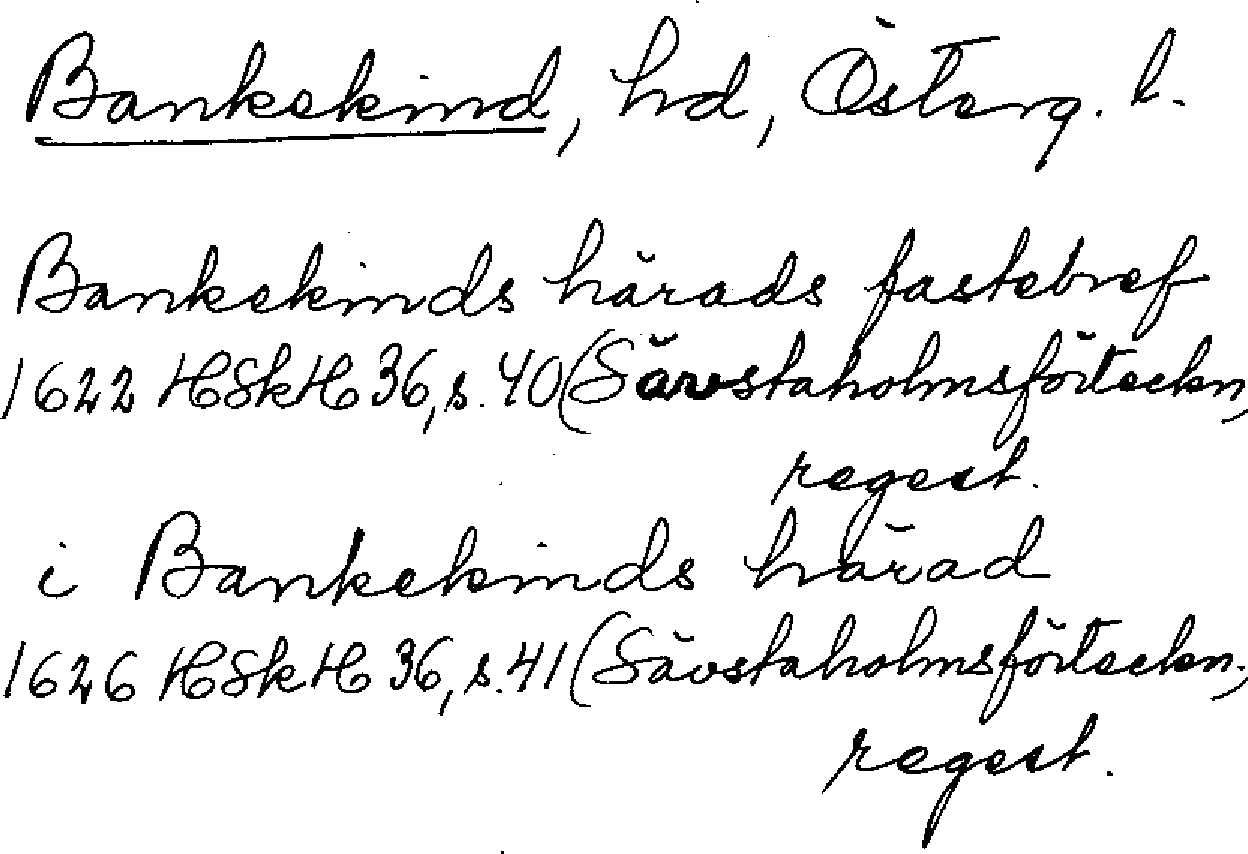 Bankekind, hd, Österg. l.
Bankekinds härads fastebref
1622 HSkH 36, s. 40 (Sävstaholmsförteckn,
regest.
i Bankekinds härad
1626 HSkH 36, s. 41 (Sävstaholmsförteckn.,
regest.